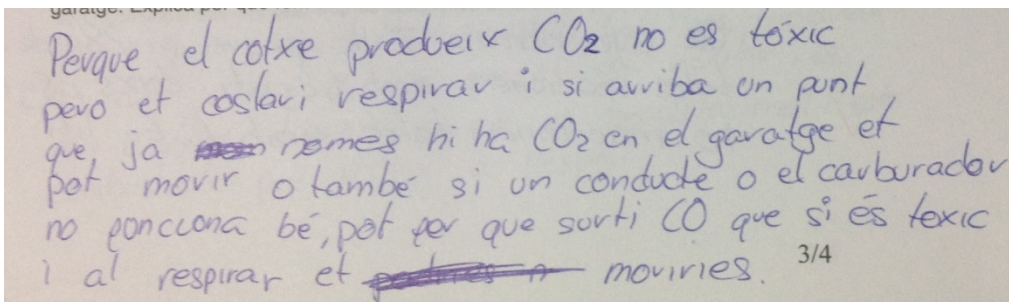 garatge. Explica per què
Perque el cotxe produeix CO2 no es tóxic
pero et costari respirar i si arriba un punt
que, ja nomes hi ha CO2 en el garatge et
pot morir o també si un conducte o el carburador
no poncciona bé, pot fer que surti CO que si és toxic
i al respirar et moriries.
3/4